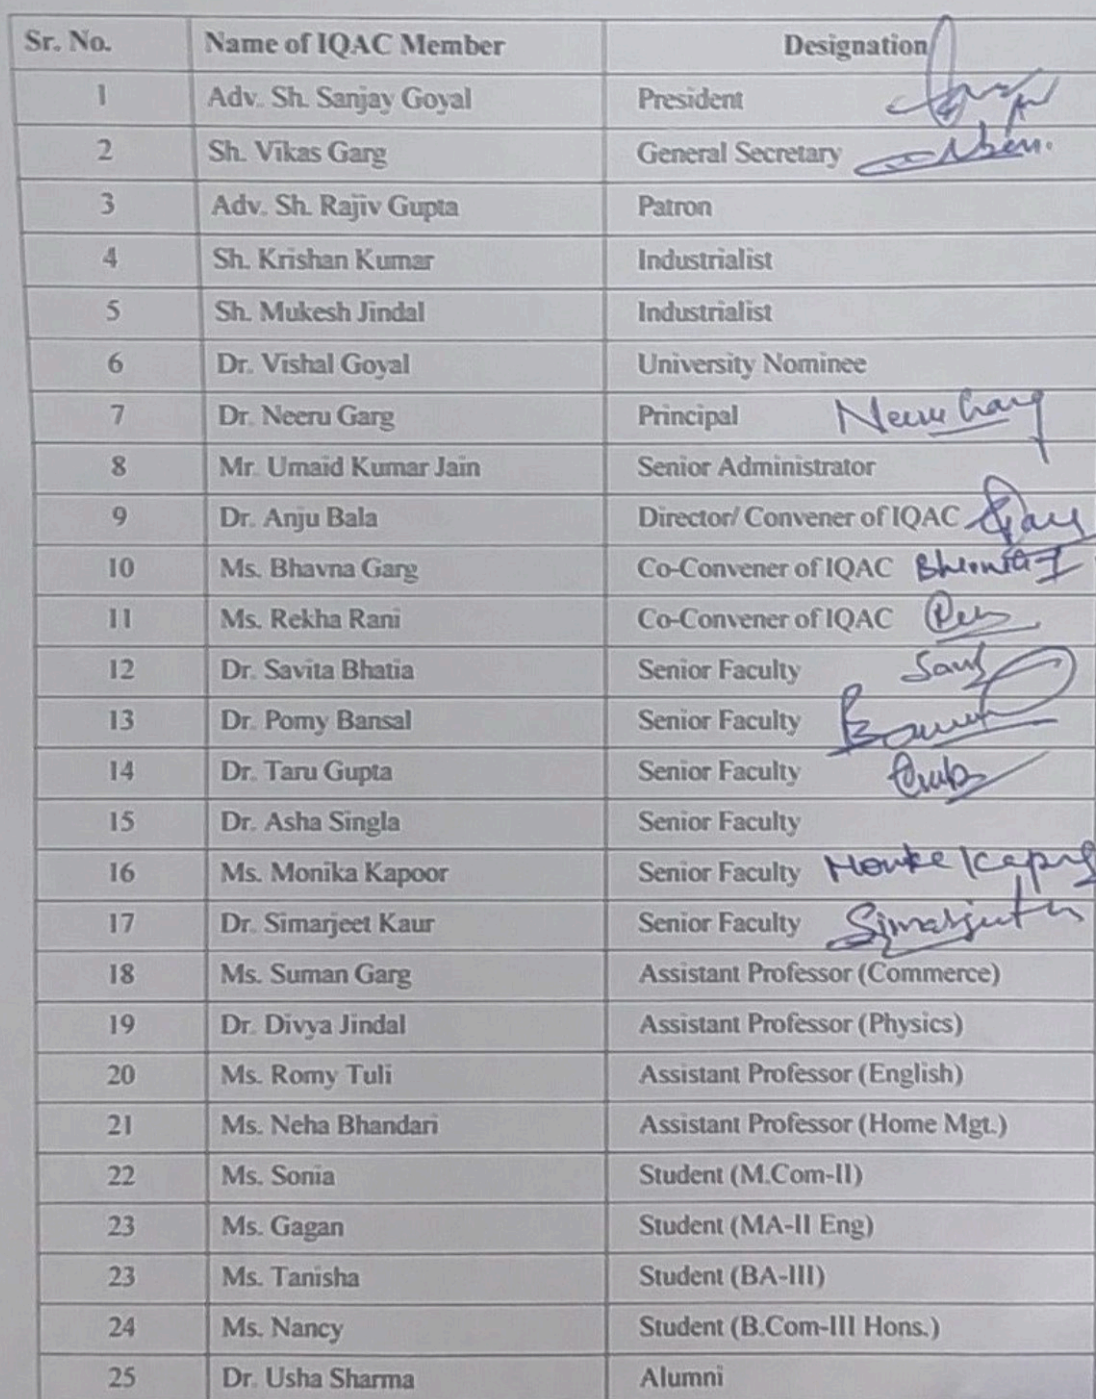 Sr. No. Name of IQAC Member Designation
1 Adv. Sh. Sanjay Goyal President
2 Sh. Vikas Garg General Secretary
3 Adv. Sh. Rajiv Gupta Patron
4 Sh. Krishan Kumar Industrialist
5 Sh. Mukesh Jindal Industrialist
6 Dr. Vishal Goyal University Nominee
7 Dr. Neeru Garg Principal Neeru Garg
8 Mr. Umaid Kumar Jain Senior Administrator
9 Dr. Anju Bala Director/ Convener of IQAC
10 Ms. Bhavna Garg Co-Convener of IQAC
11 Ms. Rekha Rani Co-Convener of IQAC
12 Dr. Savita Bhatia Senior Faculty
13 Dr. Pomy Bansal Senior Faculty
14 Dr. Taru Gupta Senior Faculty
15 Dr. Asha Singla Senior Faculty
16 Ms. Monika Kapoor Senior Faculty
17 Dr. Simarjeet Kaur Senior Faculty
18 Ms. Suman Garg Assistant Professor (Commerce)
19 Dr. Divya Jindal Assistant Professor (Physics)
20 Ms. Romy Tuli Assistant Professor (English)
21 Ms. Neha Bhandari Assistant Professor (Home Mgt.)
22 Ms. Sonia Student (M.Com-II)
23 Ms. Gagan Student (MA-II Eng)
23 Ms. Tanisha Student (BA-III)
24 Ms. Nancy Student (B.Com-III Hons.)
25 Dr. Usha Sharma Alumni